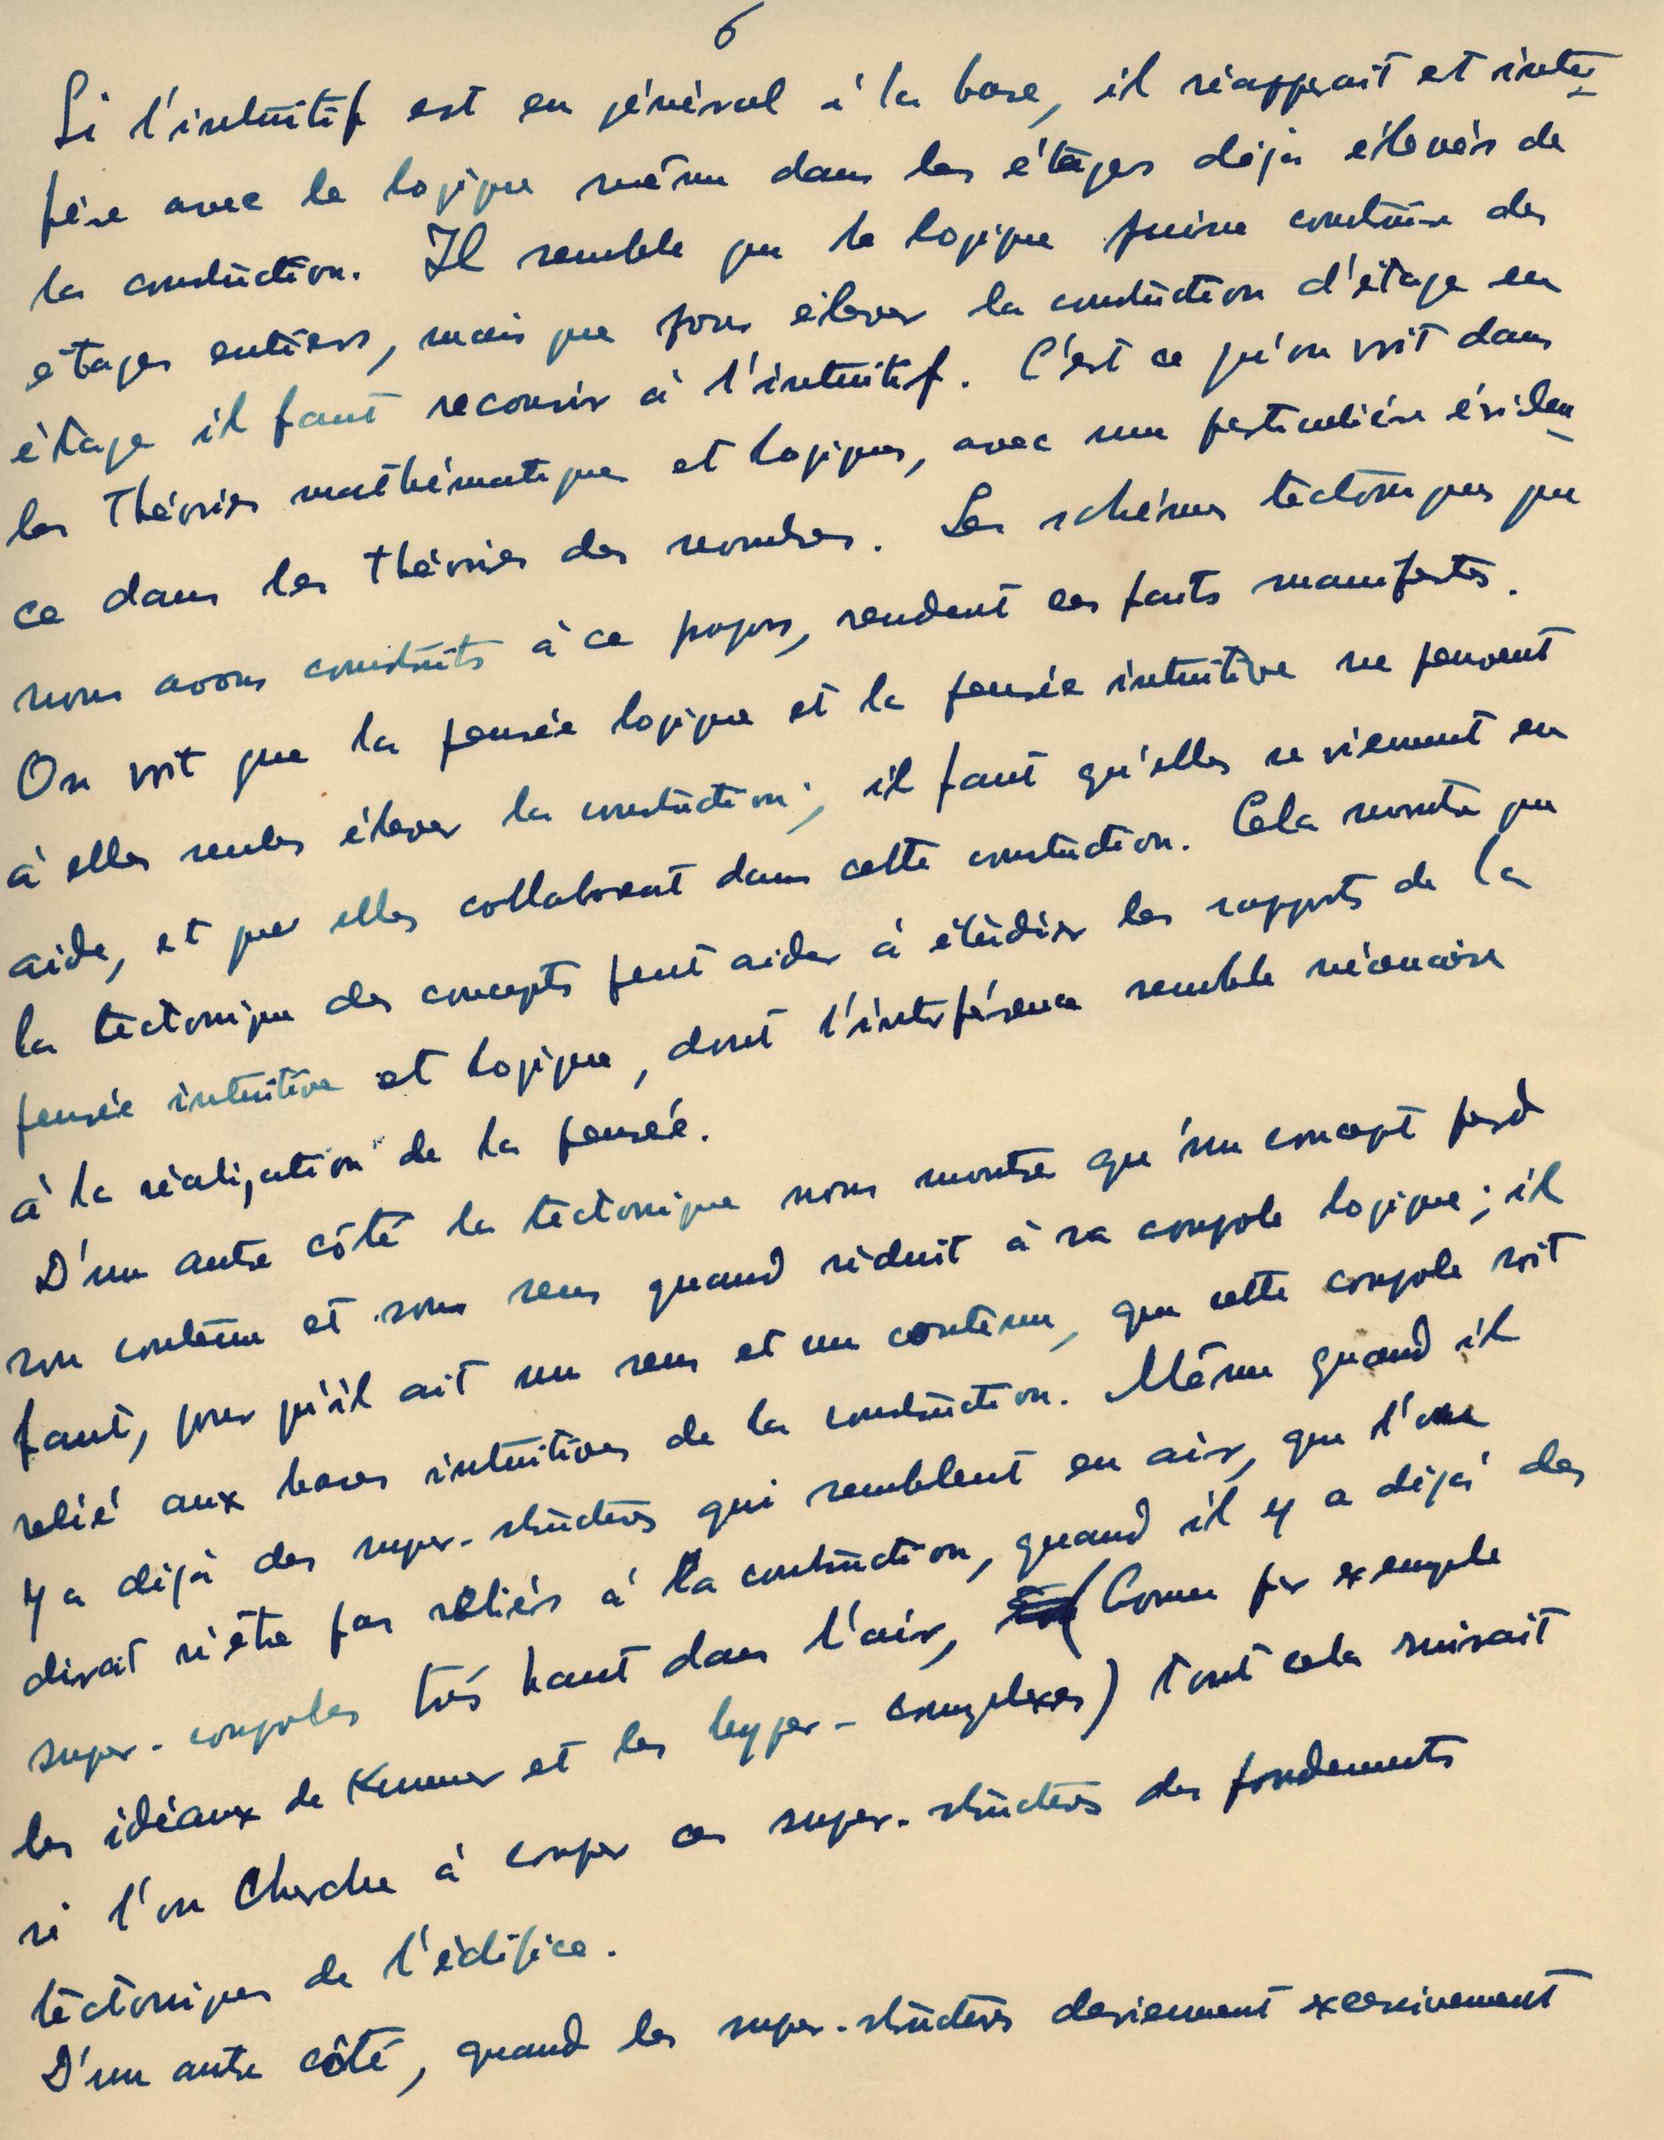 6
Si l'intuitif est en général à la base, il réapparait et inter-
fère avec le logique même dans les étages déjà élevés de
la construction. Il semble que le logique puisse construire des
étages entiers, mais que pour élever la construction d'étage en
étage il faut recourir à l'intuitif. C'est ce qu'on voit dans
les théories mathématiques et logiques, avec une particulière éviden-
ce dans les théories des nombres. Les schémas tectoniques que
nous avons construits à ce propos, rendent ces faits manifestes.
On voit que la pensée logique et la pensée intuitive ne peuvent
à elles seules élever la construction; il faut qu'elles se viennent en
aide, et que elles collaborent dans cette construction. Cela montre que
la tectonique des concepts peut aider à étudier les rapports de la
pensée intuitive et logique, dont l'interférence semble nécessaire
à la réalisation de la pensée.
D'un autre côté la tectonique nous montre qu'un concept perd
son contenu et sons sens quand réduit à sa coupole logique; il
faut, pour qu'il ait un sens et un contenu, que cette coupole soit
relié aux bases intuitives de la construction. Même quand il
y a déjà des super-structures qui semblent en air, que l'on
dirait n'être pas reliés à la construction, quand il y a déjà des
super-coupoles très haut dans l'air, (Comme par exemple
les idéaux de Kummer et les hyper-complexes) tout cela suivait
si l'on cherche à couper ces super-structures des fondements
tectoniques de l'édifice.
D'un autre côté, quand les super-structures deviennent excessivement